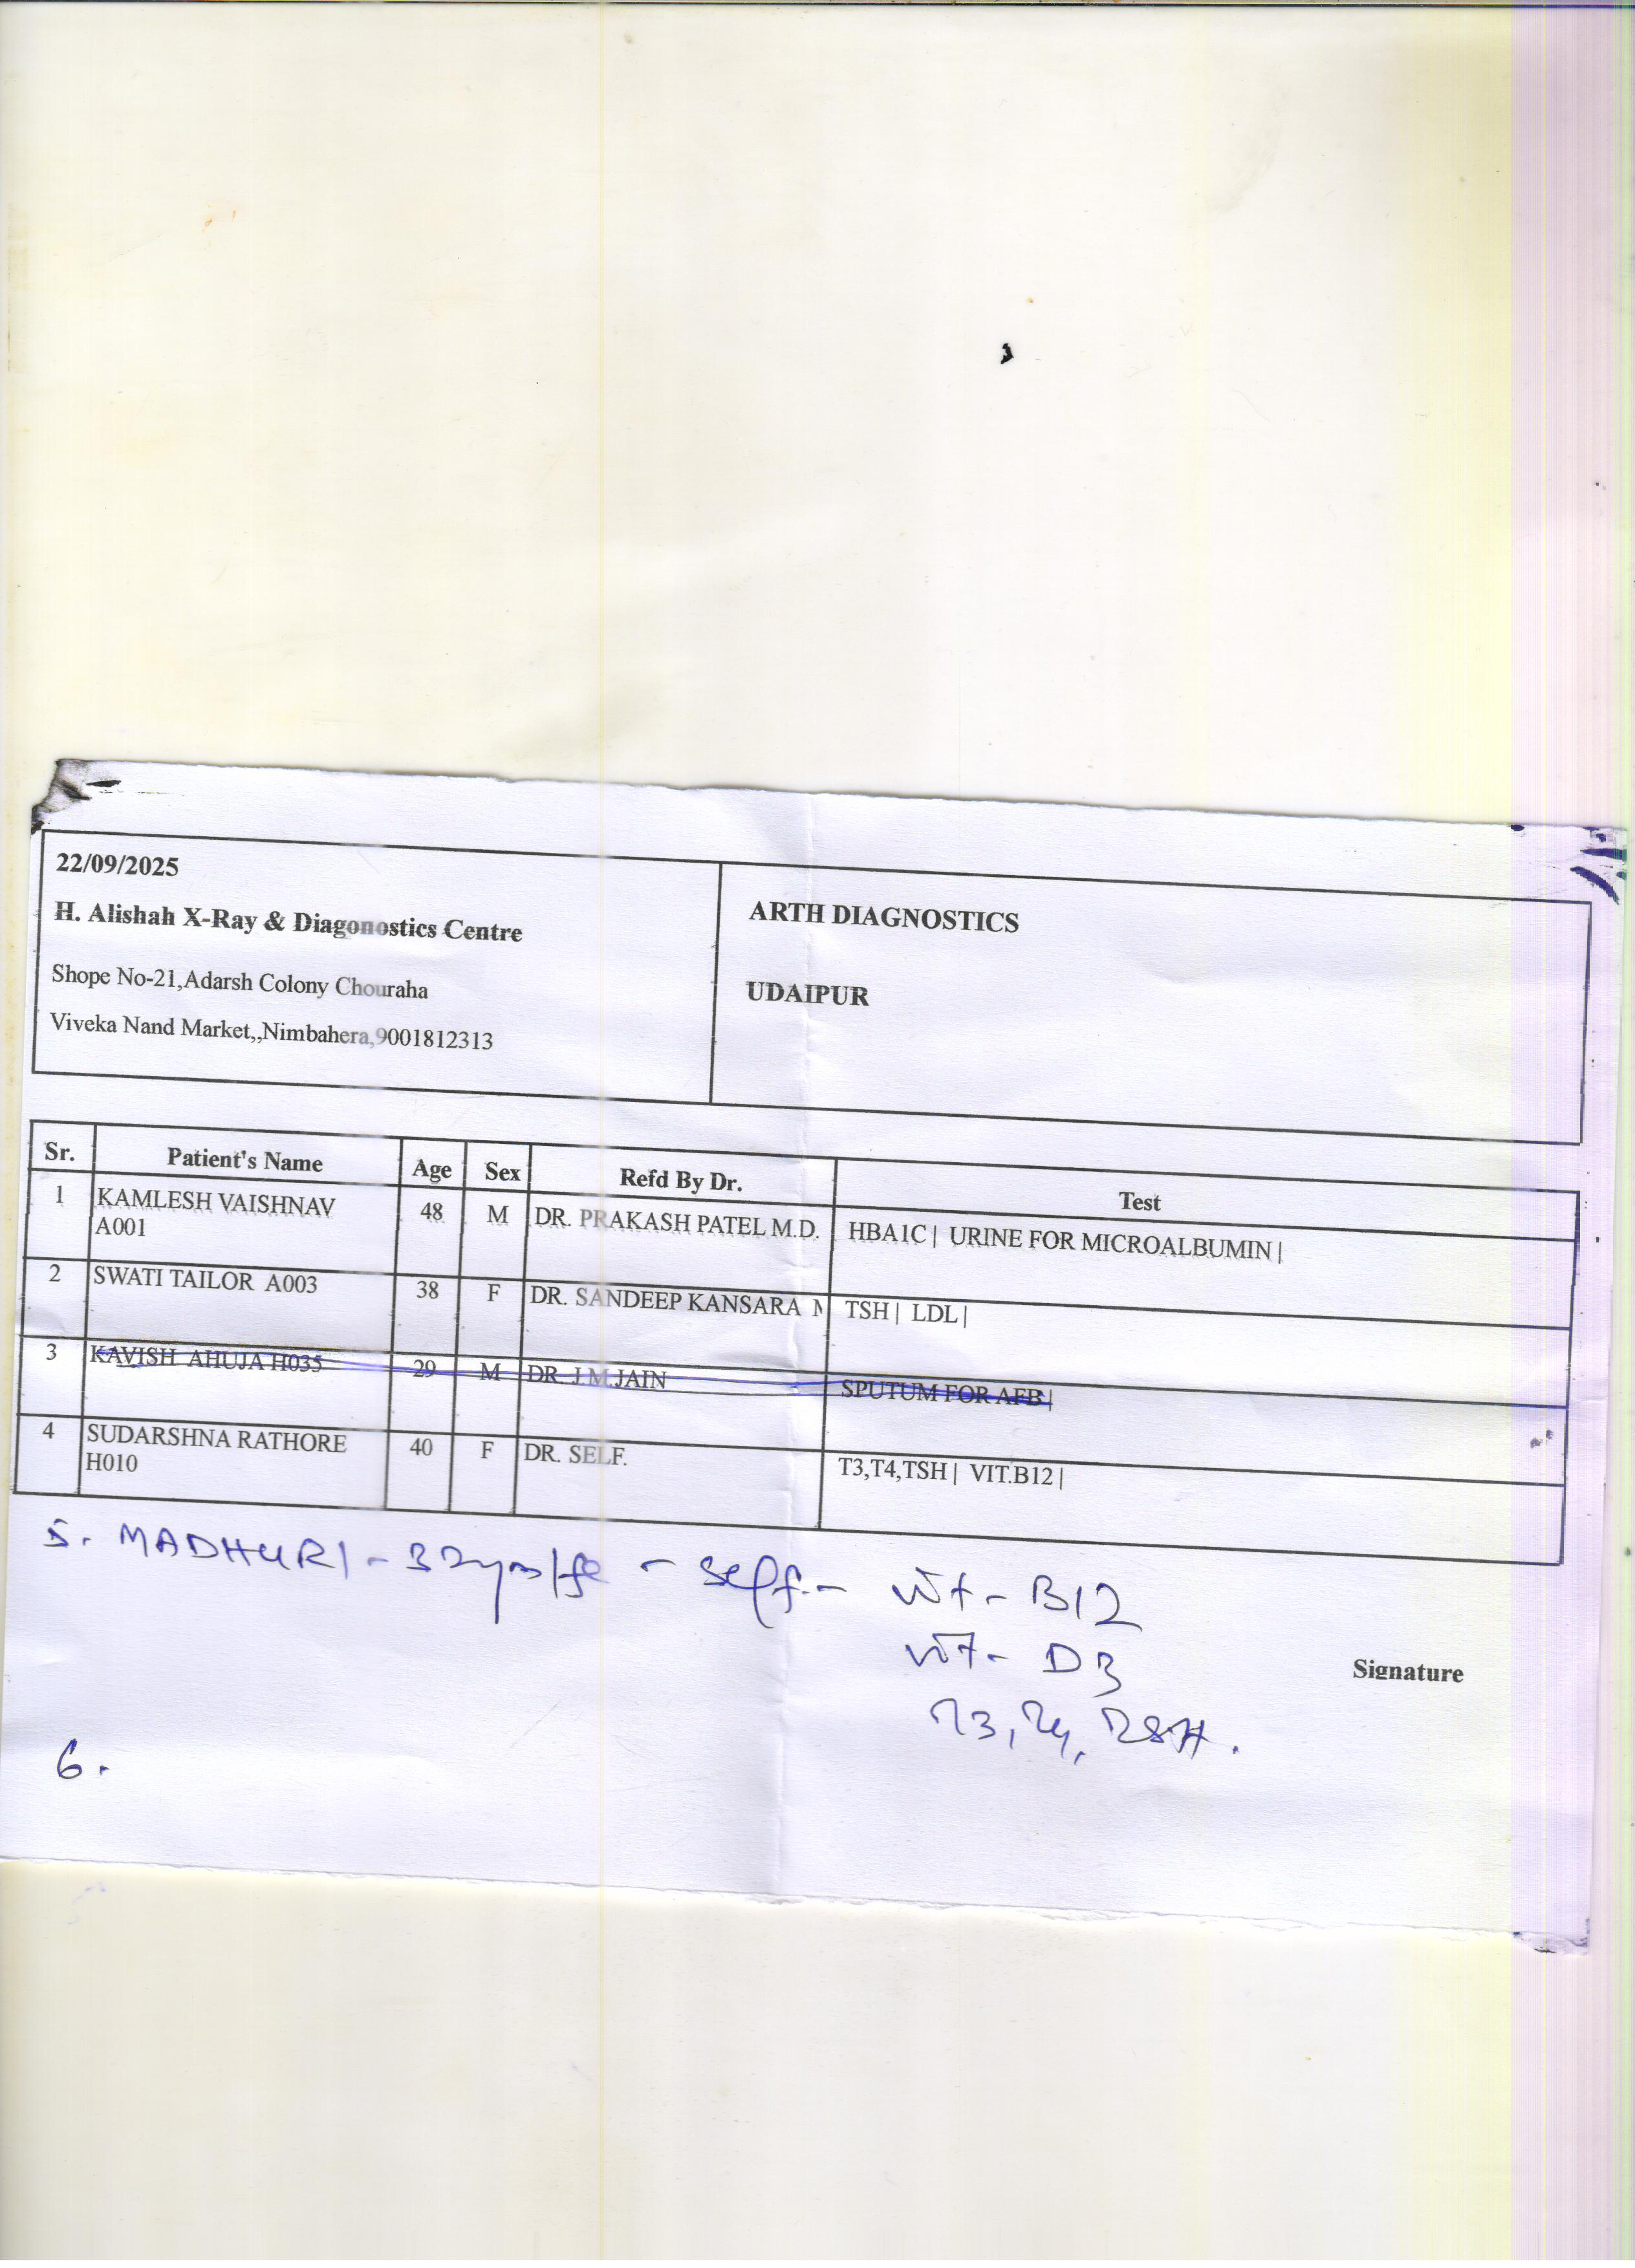 22/09/2025
H. Alishah X-Ray & Diagonostics Centre
Shope No-21,Adarsh Colony Chouraha
Viveka Nand Market,,Nimbahera,9001812313
ARTH DIAGNOSTICS
UDAIPUR
Sr. Patient's Name Age Sex Refd By Dr. Test
1 KAMLESH VAISHNAV 48 M DR. PRAKASH PATEL M.D. HBA1C| URINE FOR MICROALBUMIN|
A001
2 SWATI TAILOR A003 38 F DR. SANDEEP KANSARA TSH| LDL|
3 KAVISH AHUJA H035 29 M DR. J.M.JAIN SPUTUM FOR AFB|
4 SUDARSHNA RATHORE 40 F DR. SELF. T3,T4,TSH| VIT.B12|
H010
5. MADHURI - 32yrs/fe - self. - vit - B12
vit - D3
T3, T4, TSH.
Signature
6.